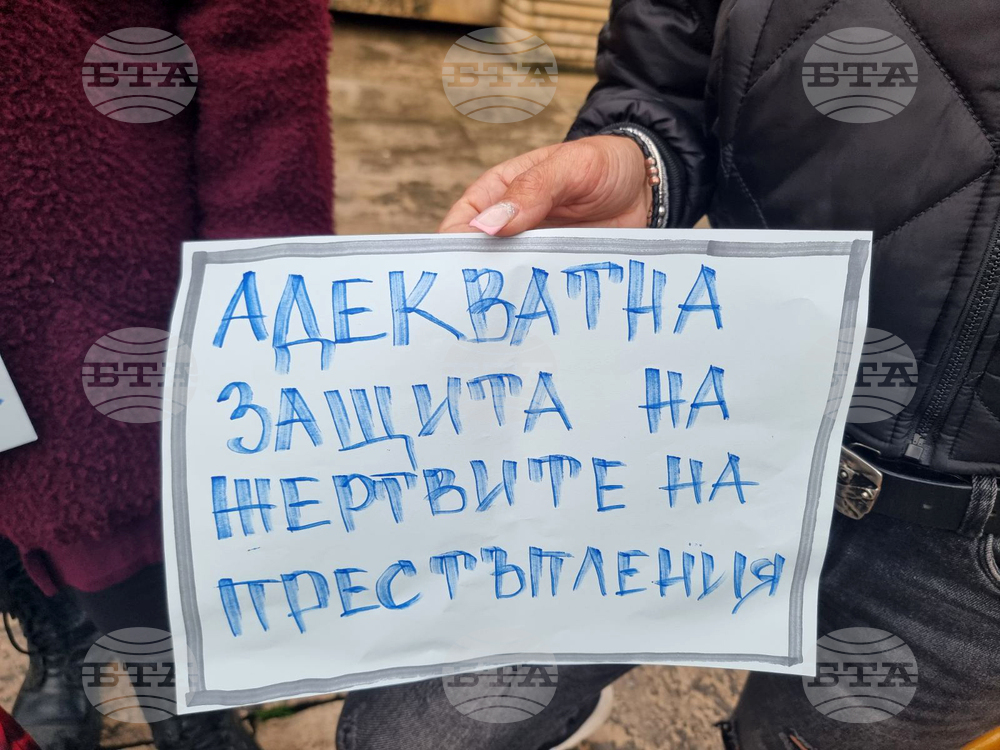 БТА БТА БТА
АДЕКВАТНА
ЗАЩИТА НА
ЖЕРТВИТЕ НА
ПРЕСТЪПЛЕНИЯ
БТА БТА
БТА БТА БТА